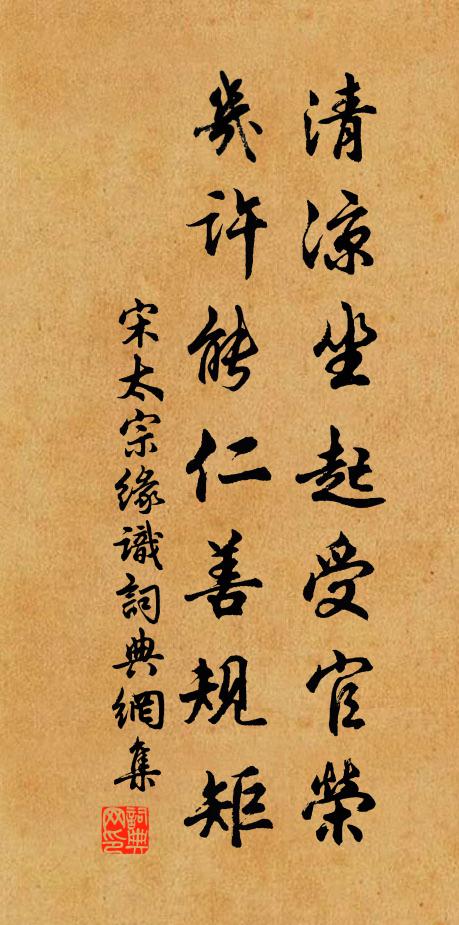 清涼坐起受官榮
幾許能仁善規矩
宋太宗緣識詞典網集
詞典網印